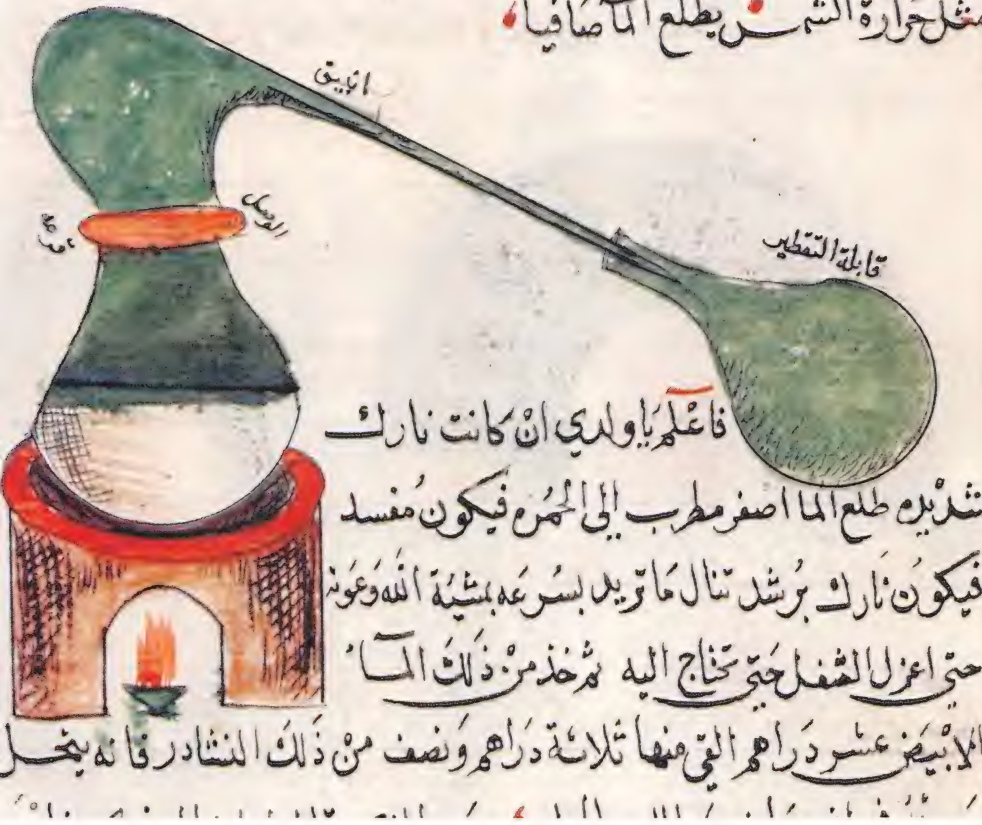 مثل حرارة الشمس يطلع الماء صافيا
انبيق
الوصل
قرعه
قابلة التقطير
فاعْلم يَا ولدي انْ كانت نارك
شديده طلع الما اصفر مطرب إلى الحُمره فيكون مُفسد
فيكوُن نارك برُشد تنال مَا تريد بسُرعه بمشيّة الله وَعَونه
حتى اعزل الثفل حَتى تحتاج اليه ثم خذ من ذلكَ المآء
الابْيَض عشر دَراهم القي منها ثلاثة دَراهم وَنصف منْ ذَلكَ النشادر فانه ينحل